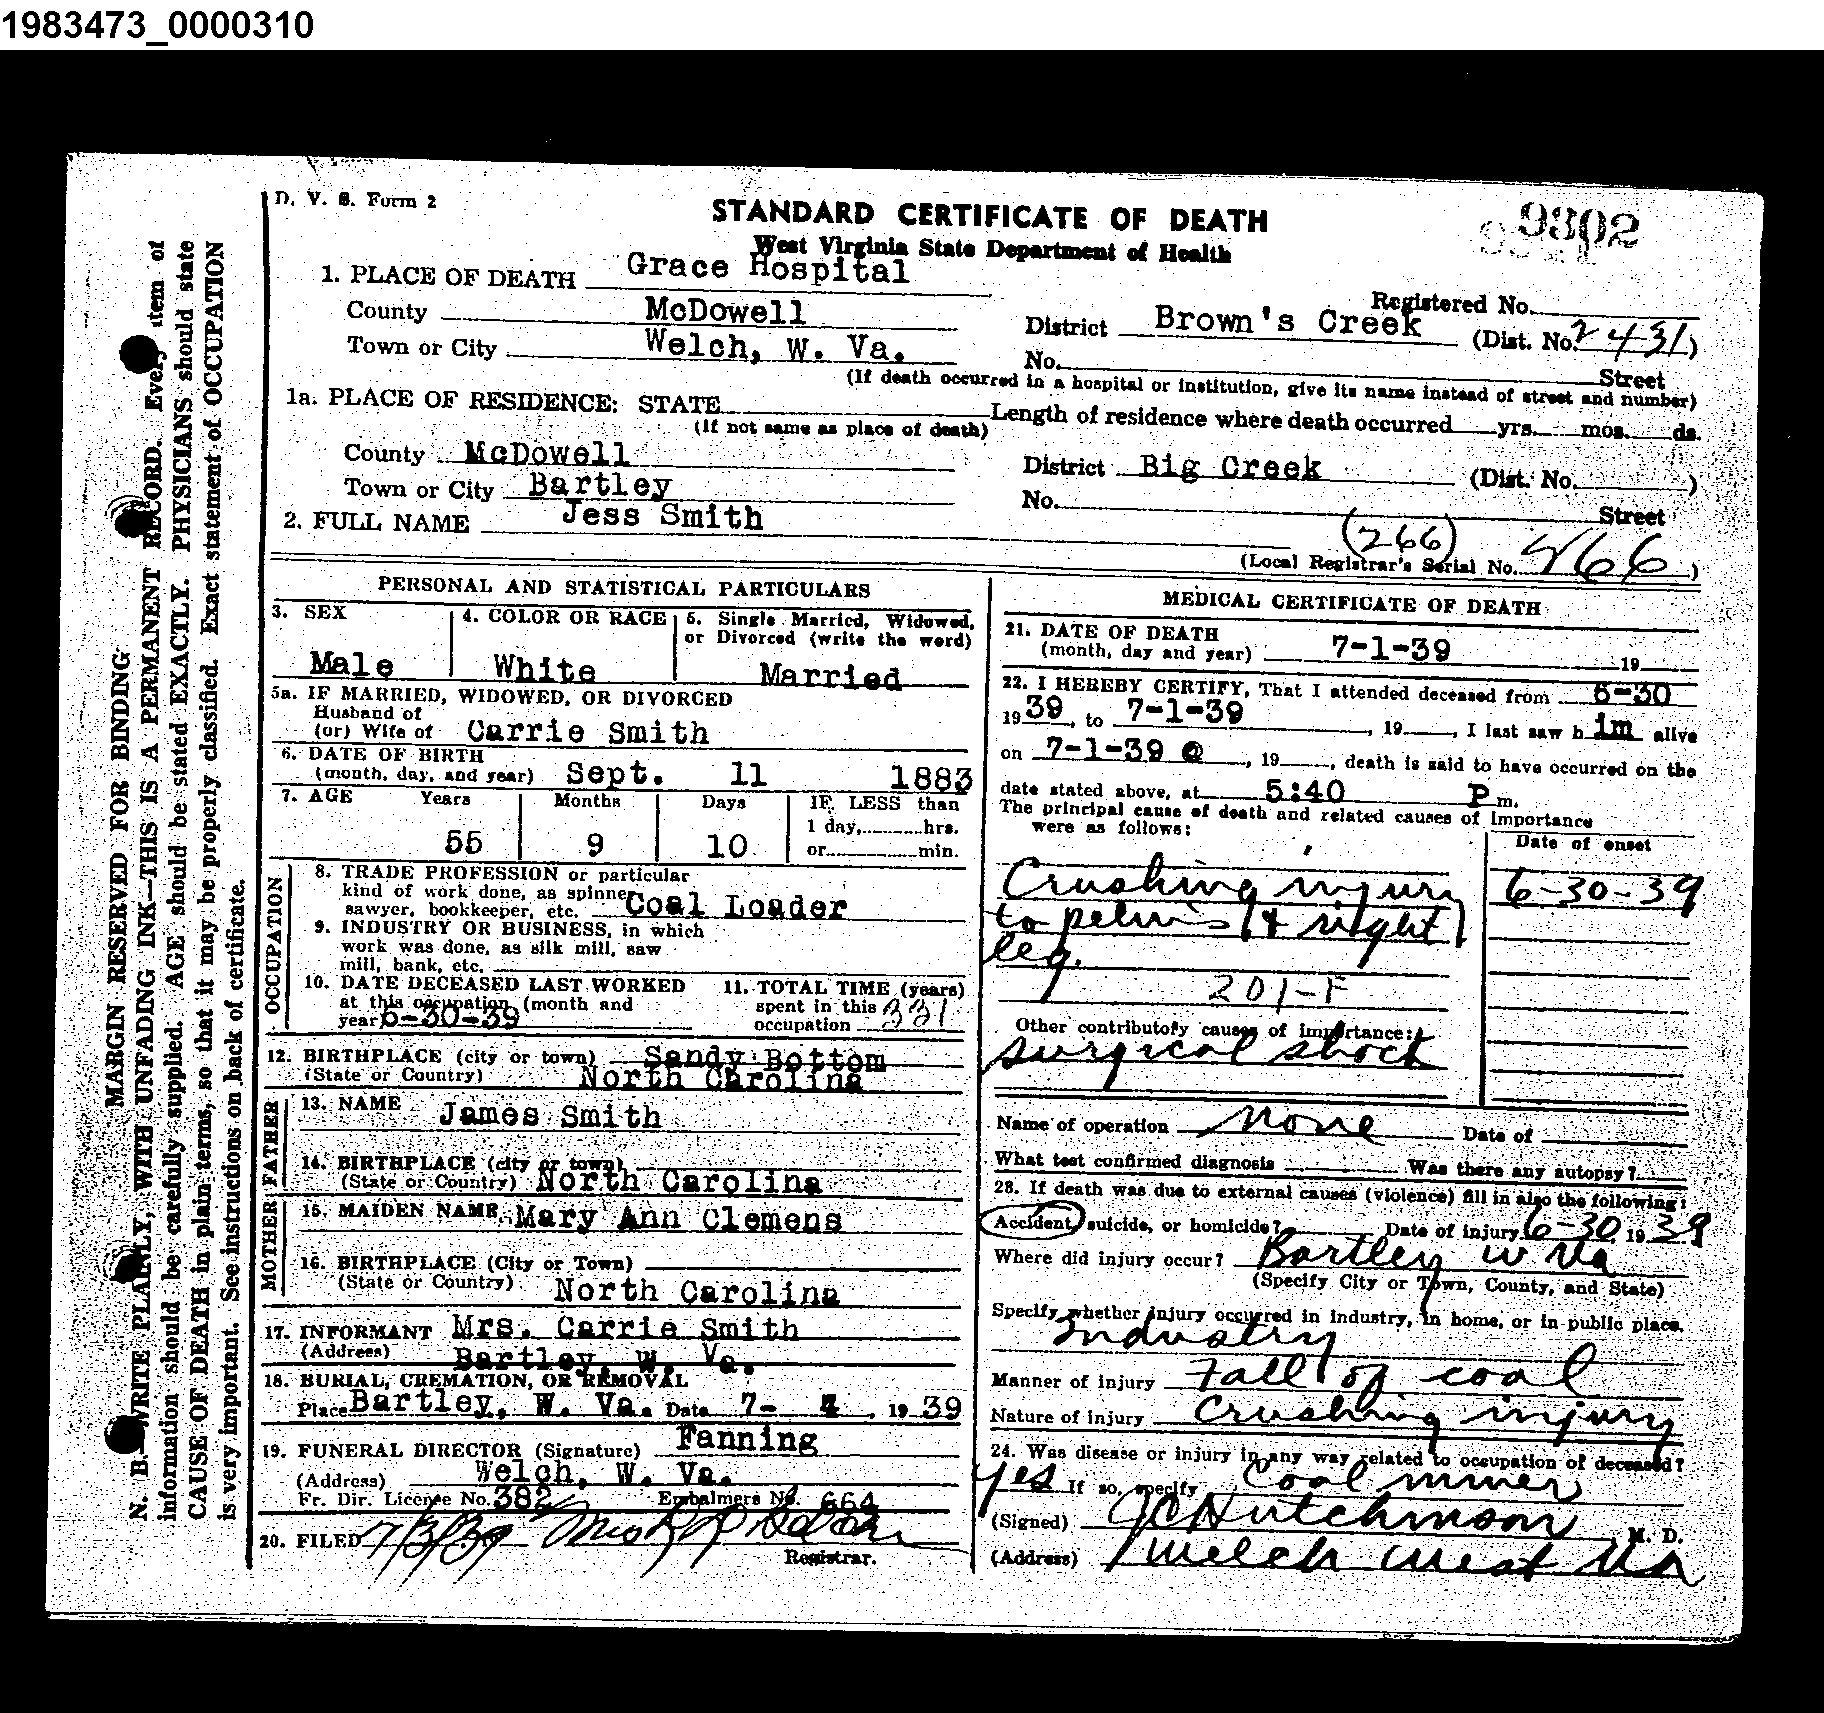 1983473_0000310
D. V. S. Form 2
STANDARD CERTIFICATE OF DEATH
9302
West Virginia State Department of Health
1. PLACE OF DEATH Grace Hospital
Registered No.
County McDowell
District Brown's Creek (Dist. No. 2431)
Town or City Welch, W. Va.
No. Street
(If death occurred in a hospital or institution, give its name instead of street and number)
1a. PLACE OF RESIDENCE: STATE
(If not same as place of death)
Length of residence where death occurred yrs. mos. ds.
County McDowell
District Big Creek (Dist. No. )
Town or City Bartley
No. Street
2. FULL NAME Jess Smith
(266)
(Local Registrar's Serial No. 466 )
PERSONAL AND STATISTICAL PARTICULARS
3. SEX
Male
4. COLOR OR RACE
White
5. Single Married, Widowed,
or Divorced (write the word)
Married
5a. IF MARRIED, WIDOWED, OR DIVORCED
Husband of
(or) Wife of Carrie Smith
6. DATE OF BIRTH
(month, day, and year) Sept. 11 1883
7. AGE Years Months Days IF LESS than
1 day, hrs.
55 9 10 or min.
OCCUPATION
8. TRADE PROFESSION or particular
kind of work done, as spinner
sawyer, bookkeeper, etc. Coal Loader
9. INDUSTRY OR BUSINESS, in which
work was done, as silk mill, saw
mill, bank, etc.
10. DATE DECEASED LAST WORKED
at this occupation (month and
year) 6-30-39
11. TOTAL TIME (years)
spent in this
occupation
12. BIRTHPLACE (city or town) Sandy Bottom
(State or Country) North Carolina
FATHER
13. NAME James Smith
14. BIRTHPLACE (city or town)
(State or Country) North Carolina
MOTHER
15. MAIDEN NAME Mary Ann Clemens
16. BIRTHPLACE (City or Town)
(State or Country) North Carolina
17. INFORMANT Mrs. Carrie Smith
(Address) Bartley, W. Va.
18. BURIAL, CREMATION, OR REMOVAL
Place Bartley, W. Va. Date 7- 4 , 19 39
19. FUNERAL DIRECTOR (Signature) Fanning
(Address) Welch, W. Va.
Fr. Dir. License No. 382 Embalmers No. 664
20. FILED 7/3/39
Registrar.
MEDICAL CERTIFICATE OF DEATH
21. DATE OF DEATH
(month, day and year) 7-1-39 19
22. I HEREBY CERTIFY, That I attended deceased from 6-30
1939, to 7-1-39 , 19 , I last saw him alive
on 7-1-39 @ , 19 , death is said to have occurred on the
date stated above, at 5:40 P m.
The principal cause of death and related causes of importance
were as follows:
Date of onset
Crushing injury 6-30-39
to pelvis (& right)
leg.
201-F
Other contributory causes of importance:
surgical shock
Name of operation None Date of
What test confirmed diagnosis Was there any autopsy?
23. If death was due to external causes (violence) fill in also the following:
Accident, suicide, or homicide? Date of injury 6-30, 1939
Where did injury occur? Bartley W Va
(Specify City or Town, County, and State)
Specify whether injury occurred in industry, in home, or in public place.
Industry
Manner of injury Fall of coal
Nature of injury Crushing injury
24. Was disease or injury in any way related to occupation of deceased?
yes If so, specify Coal miner
(Signed) JC Hutchinson, M. D.
(Address) Welch West Va
MARGIN RESERVED FOR BINDING
N. B.—WRITE PLAINLY, WITH UNFADING INK—THIS IS A PERMANENT RECORD. Every item of
information should be carefully supplied. AGE should be stated EXACTLY. PHYSICIANS should state
CAUSE OF DEATH in plain terms, so that it may be properly classified. Exact statement of OCCUPATION
is very important. See instructions on back of certificate.